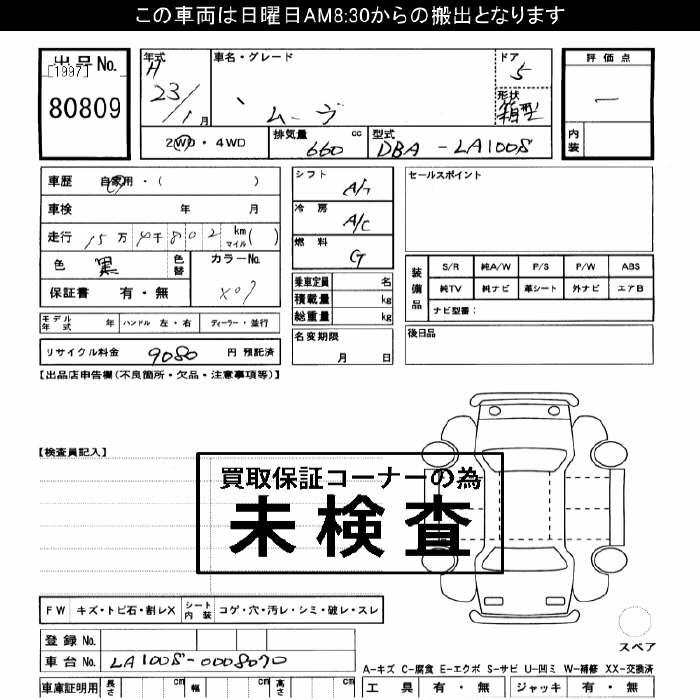 この車両は日曜日AM8:30からの搬出となります
出品No.
[1997]
80809
年式
H
23/1月
車名・グレード
ムーヴ
ドア
5
形状
箱型
評価点
ー
内装
2WD・4WD
排気量 cc
660
型式
DBA-LA100S
車歴 自家用・( )
車検 年 月
走行 15万 4千802 km マイル( )
色 黒 色替 カラーNo.
X07
保証書 有・無
シフト
冷房
A/C
燃料
G
乗車定員 名
積載量 kg
総重量 kg
名変期限
月 日
セールスポイント
装備品
S/R 純A/W P/S P/W ABS
純TV 純ナビ 革シート 外ナビ エアB
ナビ型番:
後日品
モデル年式 年 ハンドル 左・右 ディーラー・並行
リサイクル料金 9080 円 預託済
【出品店申告欄(不良箇所・欠品・注意事項等)】
【検査員記入】
買取保証コーナーの為
未検査
FW キズ・トビ石・割レX シート内装 コゲ・穴・汚レ・シミ・破レ・スレ
登録No.
車台No. LA100S-0008070
スペア
A-キズ C-腐食 E-エクボ S-サビ U-凹ミ W-補修 XX-交換済
車庫証明用 長さ cm 幅 cm 高さ cm
工具 有・無 ジャッキ 有・無